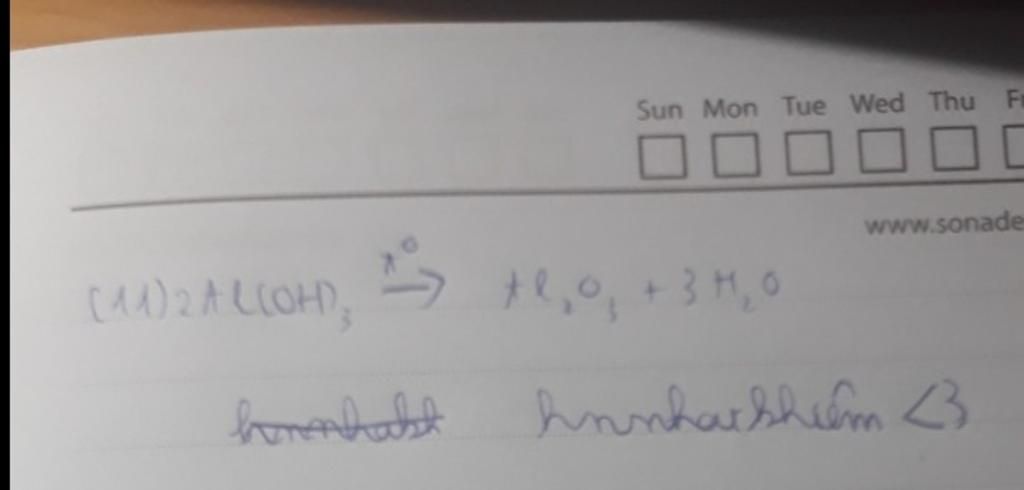 Sun Mon Tue Wed Thu Fr
www.sonade
(11) 2Al(OH)₃ →t⁰ Al₂O₃ + 3H₂O
<3